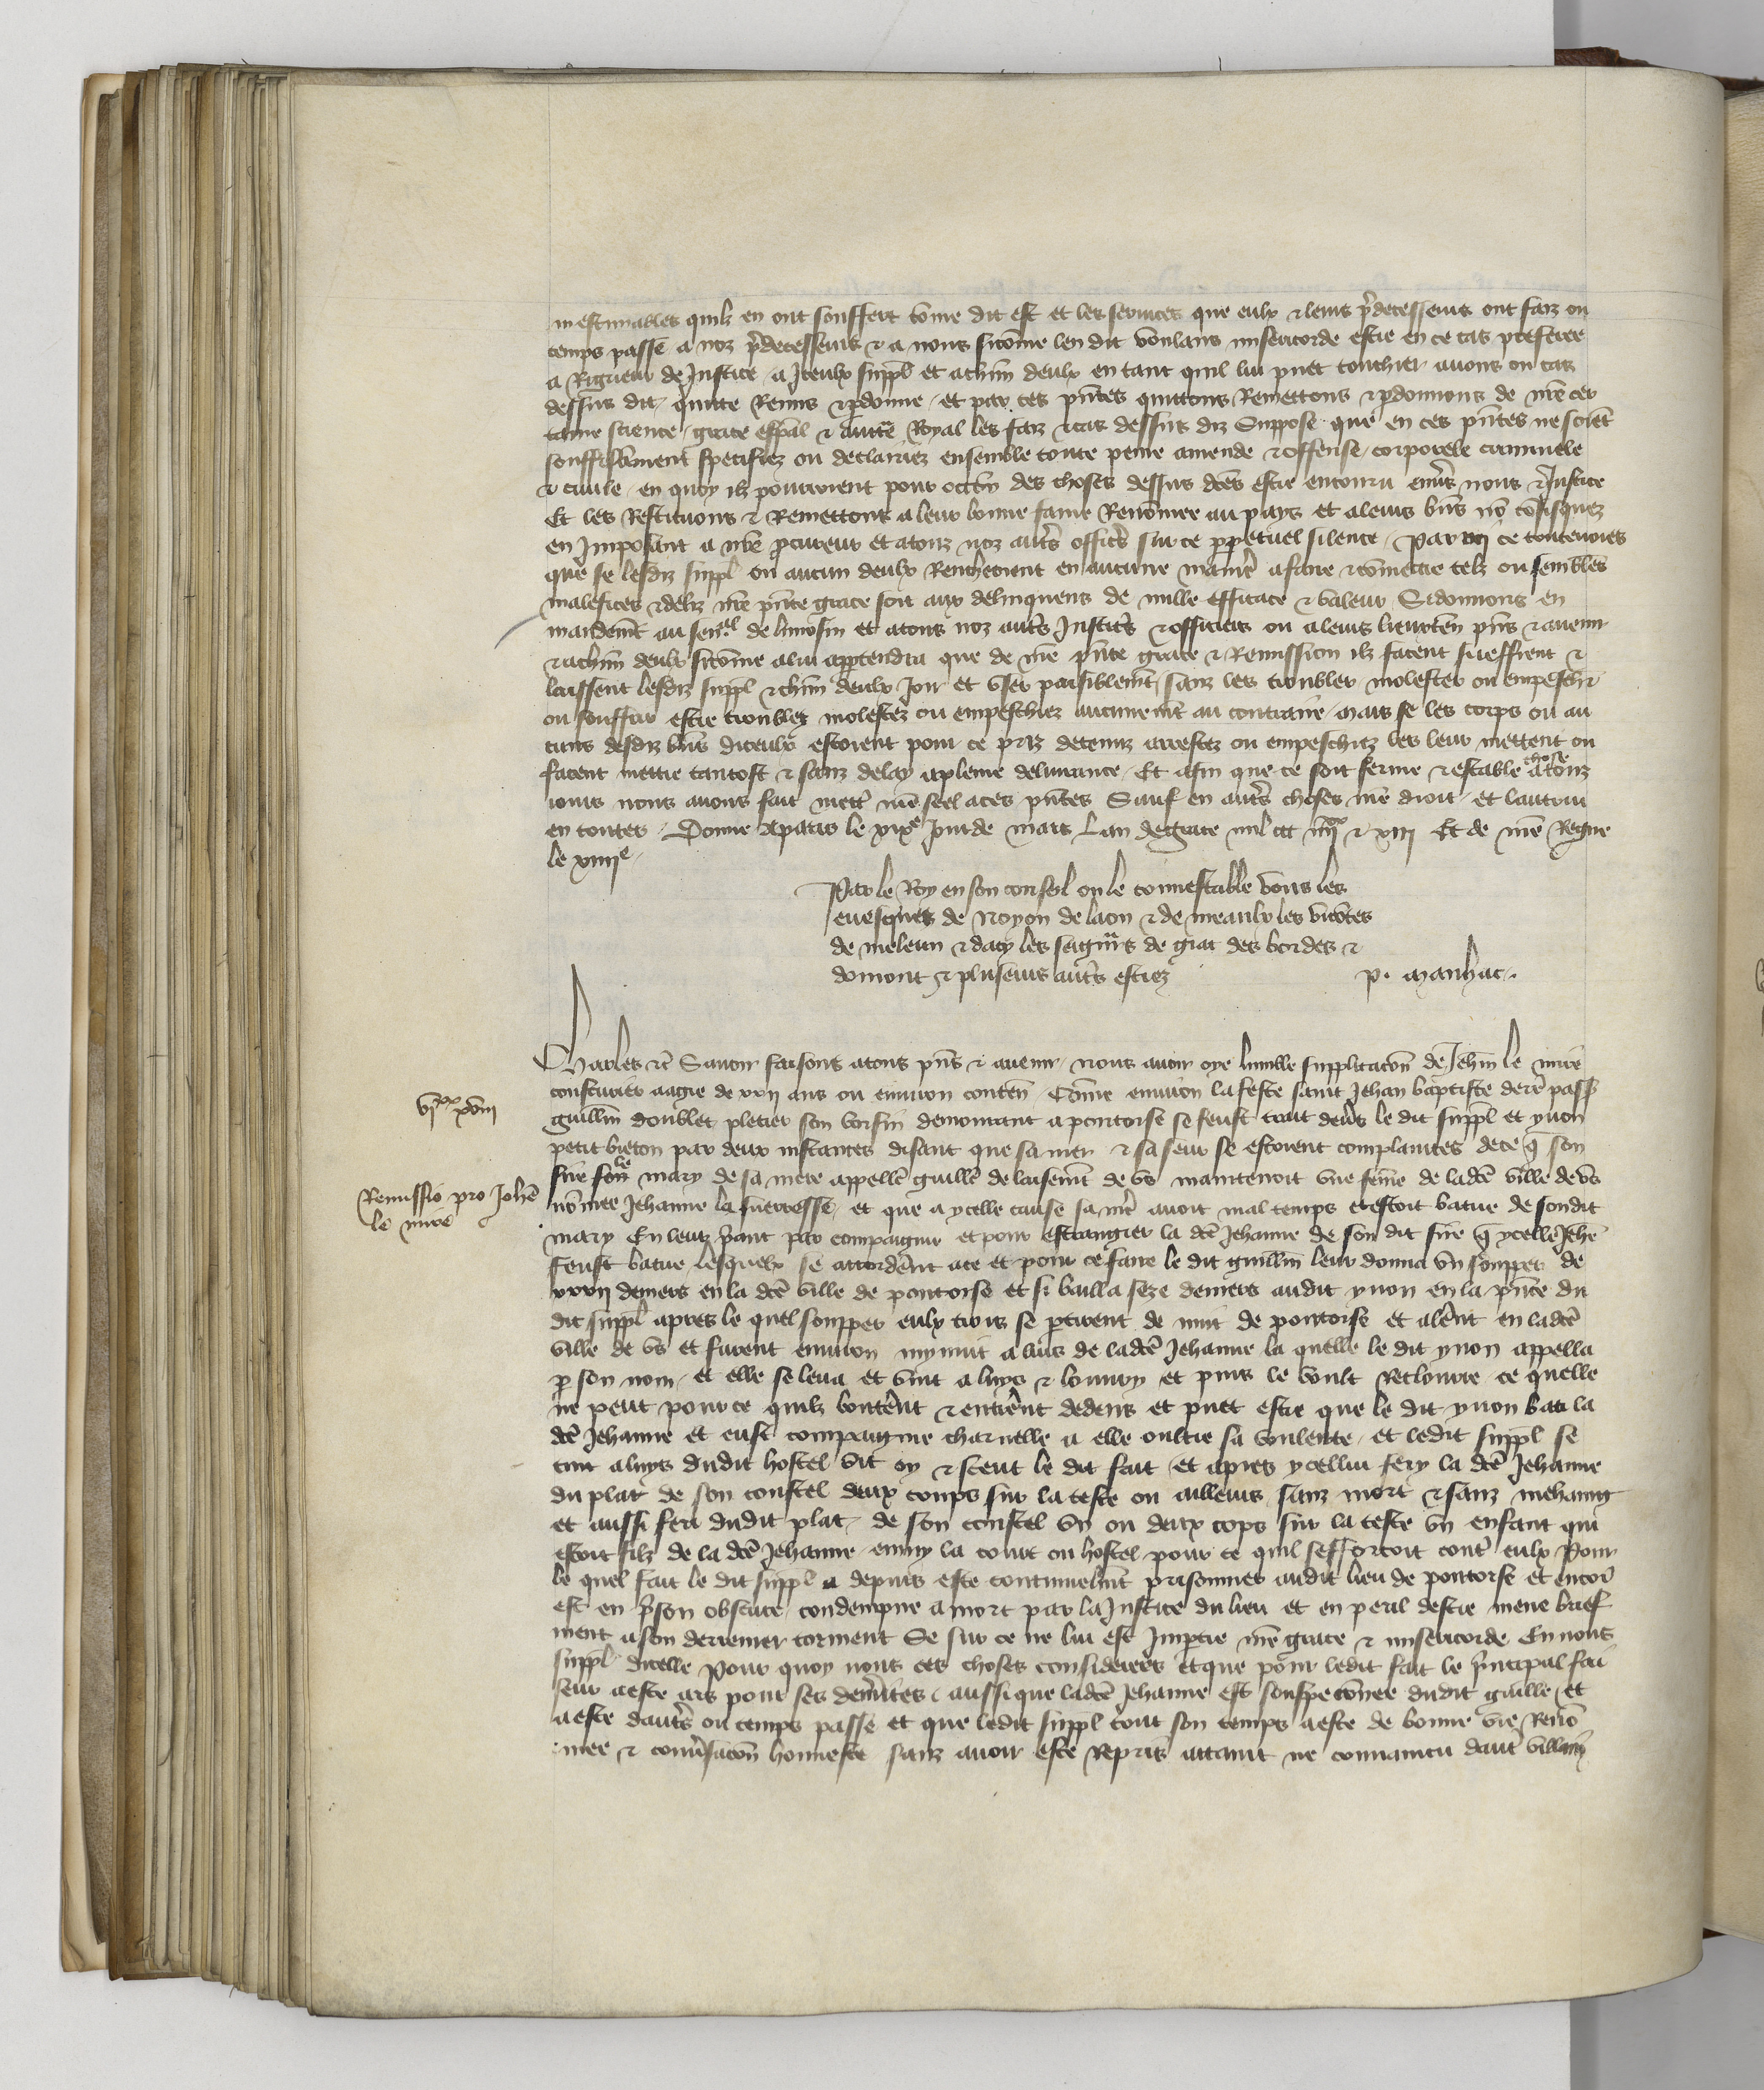 inestimables quilz en ont souffert come dit est et les services que eulx & leurs pdecesseurs ont faiz ou
temps passe a noz pdecesseurs & a nous sicome len dit voulans misericorde estre en ce cas preferee
a Rigueur de Justice a Iceulx suppl et achun deulx en tant quil lui puet touchier avons ou cas
dessus dit quicte Remis & pdonne et par ces pntes quittons Remettons & pdonnons de nre cer
taine science grace espal & aucte Royal les faiz & cas dessus diz Suppose que en ces pntes ne soiet
souffisament specifiez ou declairiez ensemble toute peine amende & offense corporele criminele
& civile en quoy ilz pourroient pour occon des choses dessus dces estre encouru envs nous & Justice
Et les Restituons & Remettons a leur bonne fame Renomee au pays et a leurs bns no cofisquez
en Imposant a nre pcureur et a touz noz autrs officrs sur ce ppetuel silence par ce
que se lesdiz suppl ou aucun deulx Rencheoient en aucune manier a faire & comettre telz ou semblables
malefices & deliz nre pnte grace soit aux delinquens de nulle efficace & valeur Sidonnons en
mandemt au senal de limosin et a touz noz autrs Justicrs & officiers ou a leurs lieuxten pns & avenir
& achun deulx sicome a lui apptendra que de nre pnte grace & Remission ilz facent sueffrent &
laissent lesdiz suppl & chun deulx Joir et user paisiblemt sanz les troubler molester ou empeschr
ou souffrir estre troublez molestez ou empeschiez aucunemt au contraire mais se les corps ou au
cuns desdiz bns diceulx estoient pour ce priz detenuz arrestez ou empeschiez les leur mettent ou
facent mettre tantost & sanz delay a pleine delivrance Et afin que ce soit ferme & estable chose a touz
jours nous avons fait mettr nre seel a ces pntes Sauf en autrs choses nre droit et lautrui
en toutes Donne a paris le xixe Jour de mars Lan de grace mil ccc iiijxx & xiij Et de nre Regne
le xiiije
Par le Roy en son conseil ou le connestable vous les
evesques de Noyon de laon & de meaulx les vicotes
de meleun & dacy les seignrs de giac des bordes &
domont & pluseurs autrs estiez p. manhac
Charles &c Savoir faisons a tous pns & avenir nous avoir oye lumble supplicacon de Jehan le mire
cousturier aagie de xxij ans ou environ conten Come environ la feste saint Jehan baptiste derr passe
guillm doublet pletier son voisin demourant a pontoise se feust trait devs le dit suppl et yvon
petit breton par deux instances disant que sa mer & sa seur se estoient complaintes de ce q son
sire le mary de sa mere appelle guille de laisemt de vs maintenoit une feme de ladce ville de vs
nomee Jehanne la ferresse et que a ycelle cause sa mer avoit mal temps et estoit batue de sondit
mary En leur priant par compaignie et pour estrangier la dce Jehanne de son dit sire q ycelle Jehe
feust batue lesquelx se accorderent a ce et pour ce faire le dit guillm leur donna un soupper de
xxxij deniers en la dce ville de pontoise et si bailla seze deniers audit yvon en la pnce du
dit suppl apres le quel soupper eulx trois se ptirent de nuit de pontoise et alerent en ladce
ville de vs et furent environ mynuit a luis de ladce Jehanne la quelle le dit yvon appella
p son nom et elle se leva et vint a luys & louvry et puis le voult Reclourre ce quelle
ne peut pour ce quilz bouterent & entrerent dedens et puet estre que le dit yvon bati la
dce Jehanne et eust compaignie charnelle a elle oultre sa voulente et ledit suppl se
tint a luys dudit hostel vit oy & sceut le dit fait et apres ycellui fery la dce Jehanne
du plat de son coustel deux coups sur la teste ou ailleurs sanz mort & sanz mehaing
et aussi feri dudit plat de son coustel un ou deux cops sur la teste un enfant qui
estoit filz de la dce Jehanne emmy la court ou hostel pour ce quil sefforcoit contr eulx Pour
le quel fait le dit suppl a depuis este continuelmt prisonnier audit lieu de pontoise et encor
est en prison obscure condempne a mort par la Justice du lieu et en peril destre mene brief
ment a son derrenier torment Se sur ce ne lui est Imptie nre grace & misericorde En nous
suppl dicelle Pour quoy nous ces choses considerees et que pour ledit fait le principal fai
seur a este ars pour ses demerites aussi que ladce Jehanne est souspeconnee dudit guille et
a este dautrs ou temps passe et que ledit suppl tout son temps a este de bonne vie Reno
mee & conversacon honneste sanz avoir este Repris attaint ne convaincu dautr villain
vjxx xviij
Remissio pro Johe
le mire